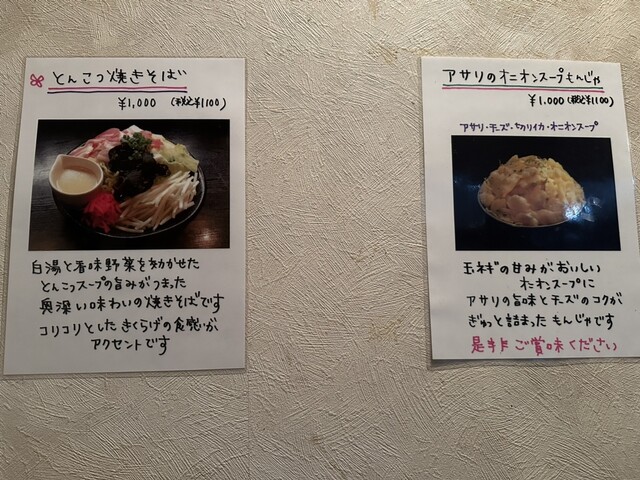 とんこつ焼きそば
¥1,000 (税込¥1100)
白湯と香味野菜を効かせた
とんこつスープの旨みがつまった
奥深い味わいの焼きそばです
コリコリとしたきくらげの食感が
アクセントです
アサリのオニオンスープもんじゃ
¥1,000 (税込¥1100)
アサリ・チーズ・切りイカ・オニオンスープ
玉ネギの甘みがおいしい
オニオンスープに
アサリの旨味とチーズのコクが
ぎゅっと詰まったもんじゃです
是非ご賞味ください